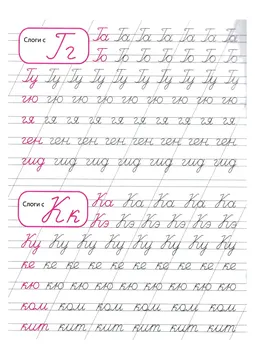 Слоги с Гг
Га Га Га Га Га Га Га
Го Го Го Го Го Го Го
Гу Гу Гу Гу Гу Гу Гу Гу Гу
гю гю гю гю гю гю гю гю
гя гя гя гя гя гя гя гя гя
ген ген ген ген ген ген ген
гид гид гид гид гид гид гид
Слоги с Кк
Ка Ка Ка Ка Ка Ка
Кэ Кэ Кэ Кэ Кэ Кэ
Ку Ку Ку Ку Ку Ку Ку Ку
ке ке ке ке ке ке ке ке ке
кю кю кю кю кю кю кю кю
ком ком ком ком ком ком
кит кит кит кит кит кит кит